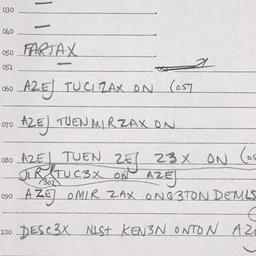 030
040
050 FARTAX
051
060 AZEJ TUCIZAX ON (057
070 AZEJ TUEN MIRZAX ON
080 AZEJ TUEN ZEJ Z3X ON (05
JIR TUC3X ON AZEJ
302
090 AZEJ OMIR ZAX ONG3TON DEMLS
100 DESC3X NLST KEN3N ONTON AZ